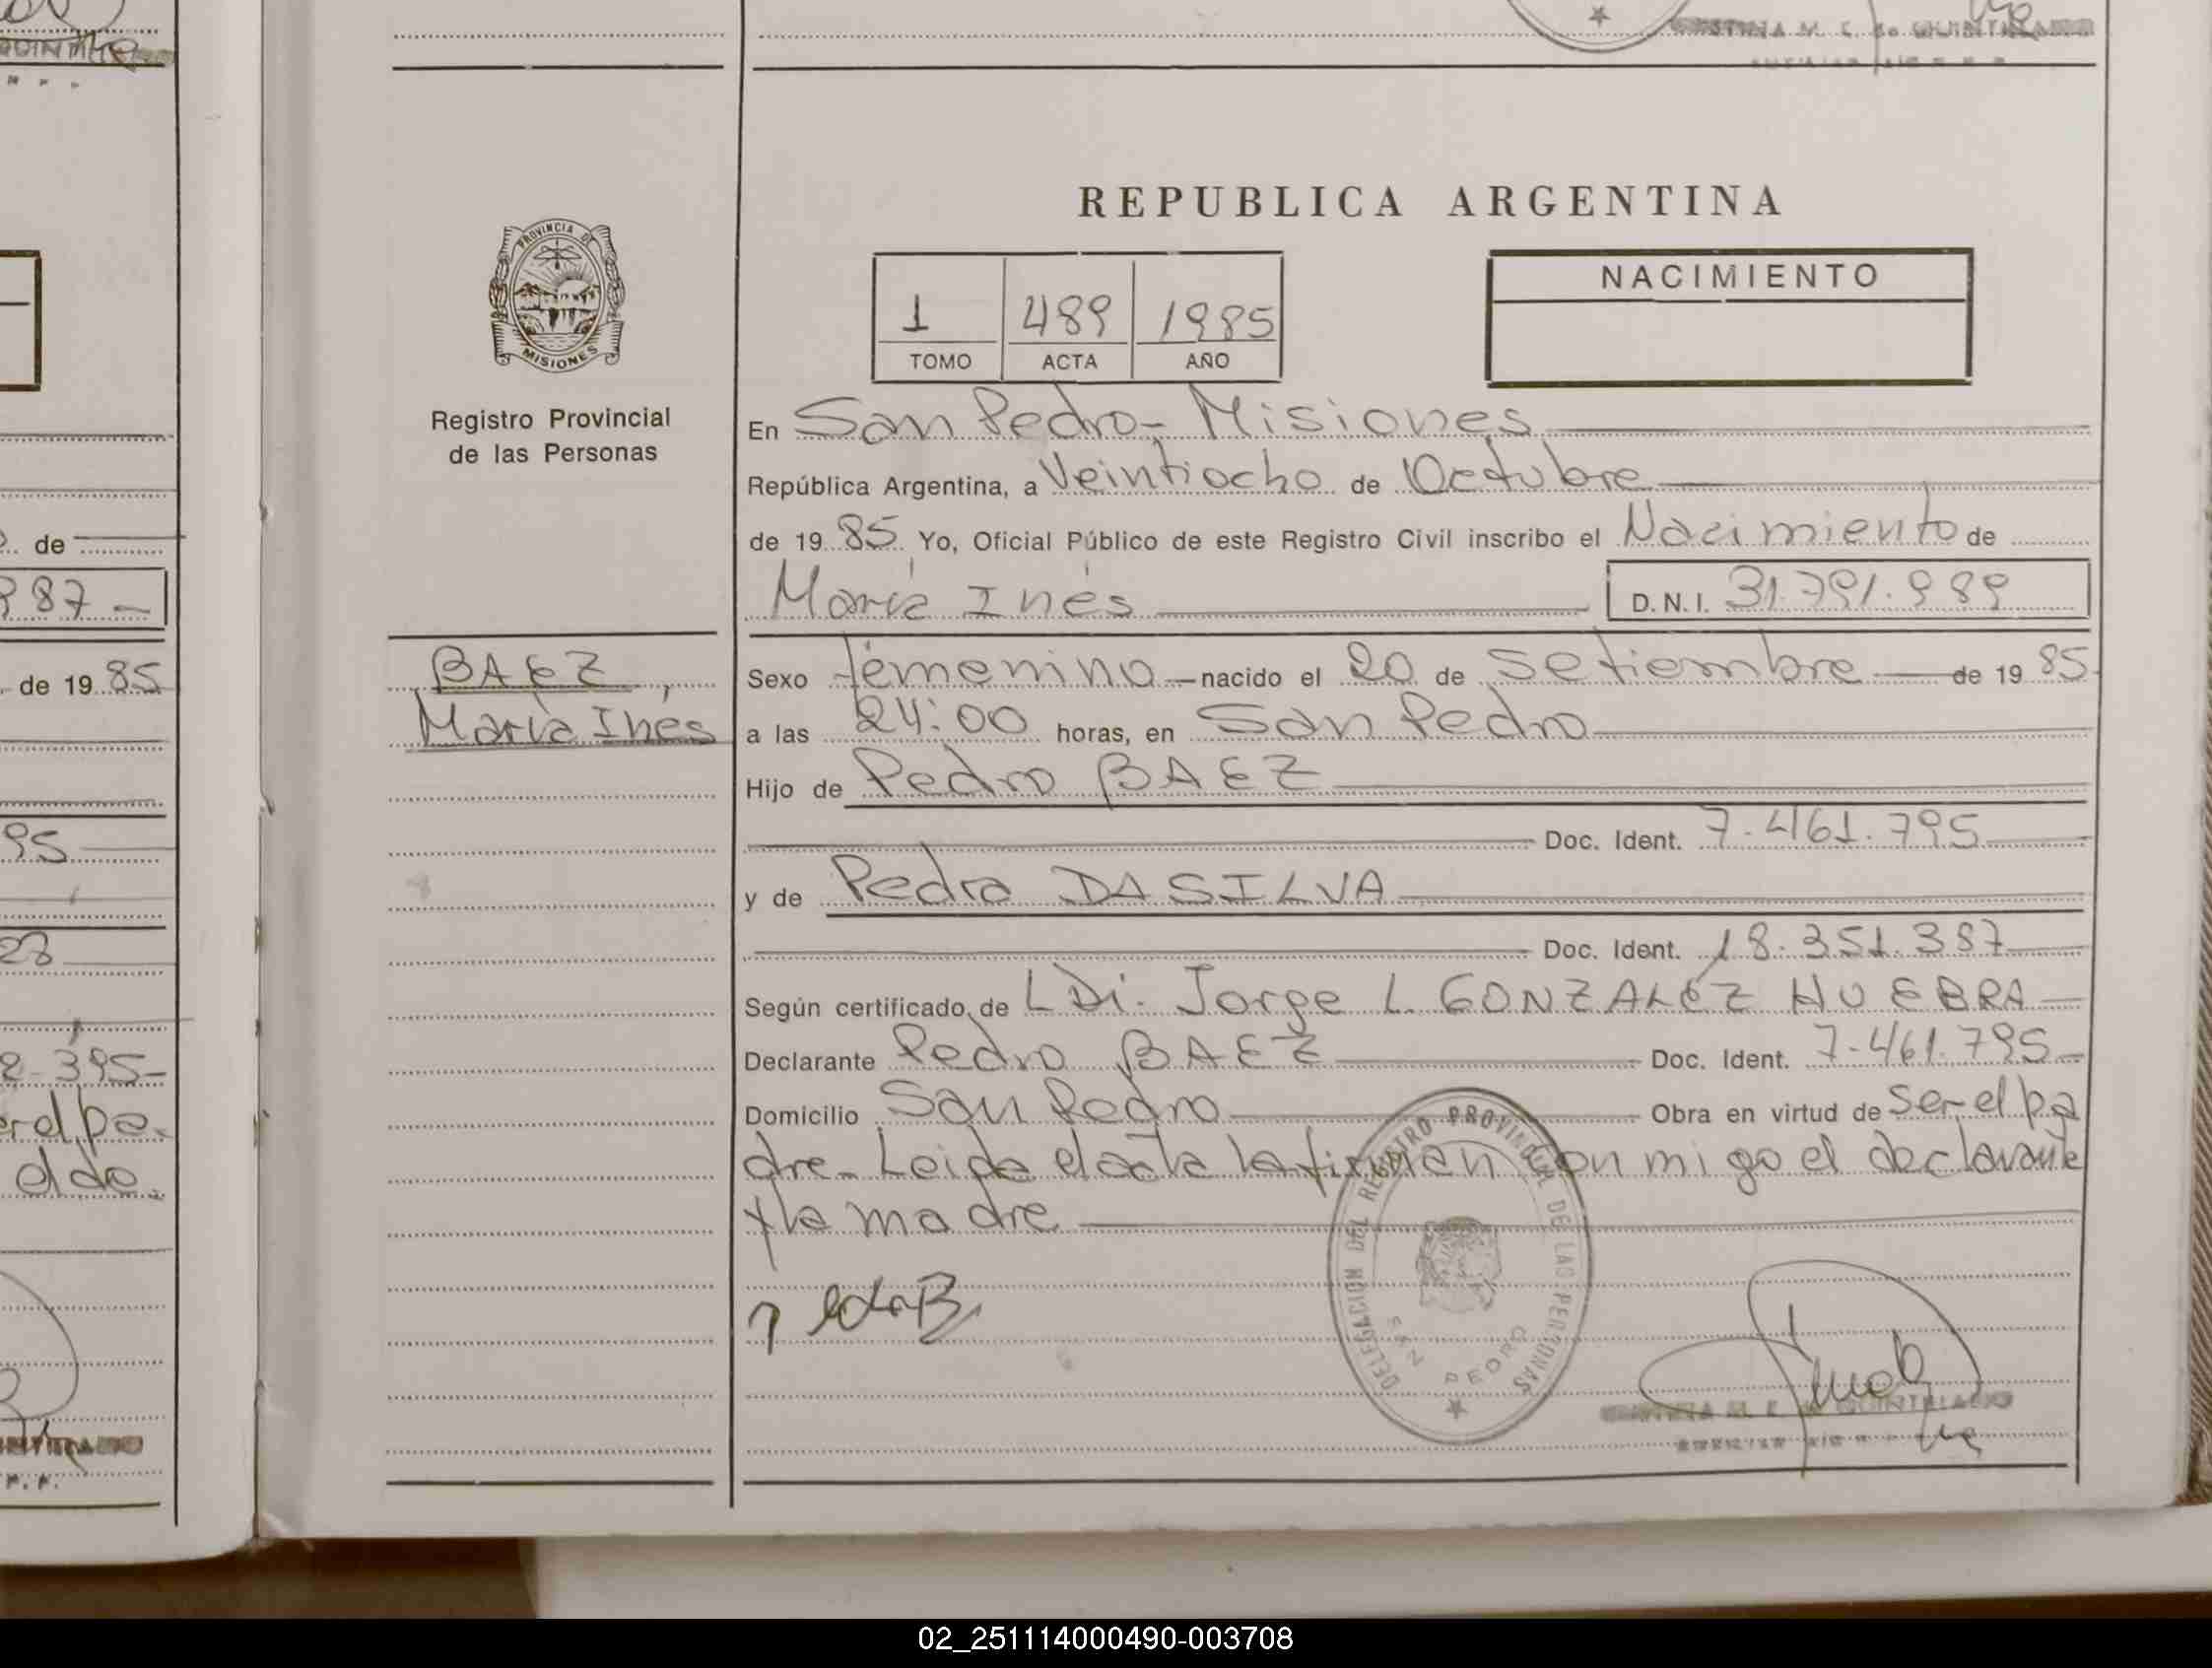 REPUBLICA ARGENTINA
PROVINCIA DE
MISIONES
Registro Provincial
de las Personas
1 489 1985
TOMO ACTA AÑO
NACIMIENTO
En San Pedro-, Misiones
República Argentina, a Veintiocho de Octubre
de 1985 Yo, Oficial Público de este Registro Civil inscribo el Nacimiento de
María Inés D.N.I. 31.791.989
BAEZ,
María Inés
Sexo femenino nacido el 20 de Setiembre de 1985
a las 24:00 horas, en San Pedro
Hijo de Pedro BAEZ
Doc. Ident. 7.461.795
y de Pedra DA SILVA
Doc. Ident. 18.351.387
Según certificado de L Di. Jorge L. GONZALEZ HUEBRA
Declarante Pedro BAEZ Doc. Ident. 7.461.795
Domicilio San Pedro Obra en virtud de ser el pa
dre- Leida el acta la firman con migo el declarante
y la madre
DELEGACION DEL REGISTRO PROVINCIAL DE LAS PERSONAS
SAN PEDRO
de
987
de 1985
95
28
2-395
er el pa.
el de.
02_251114000490-003708